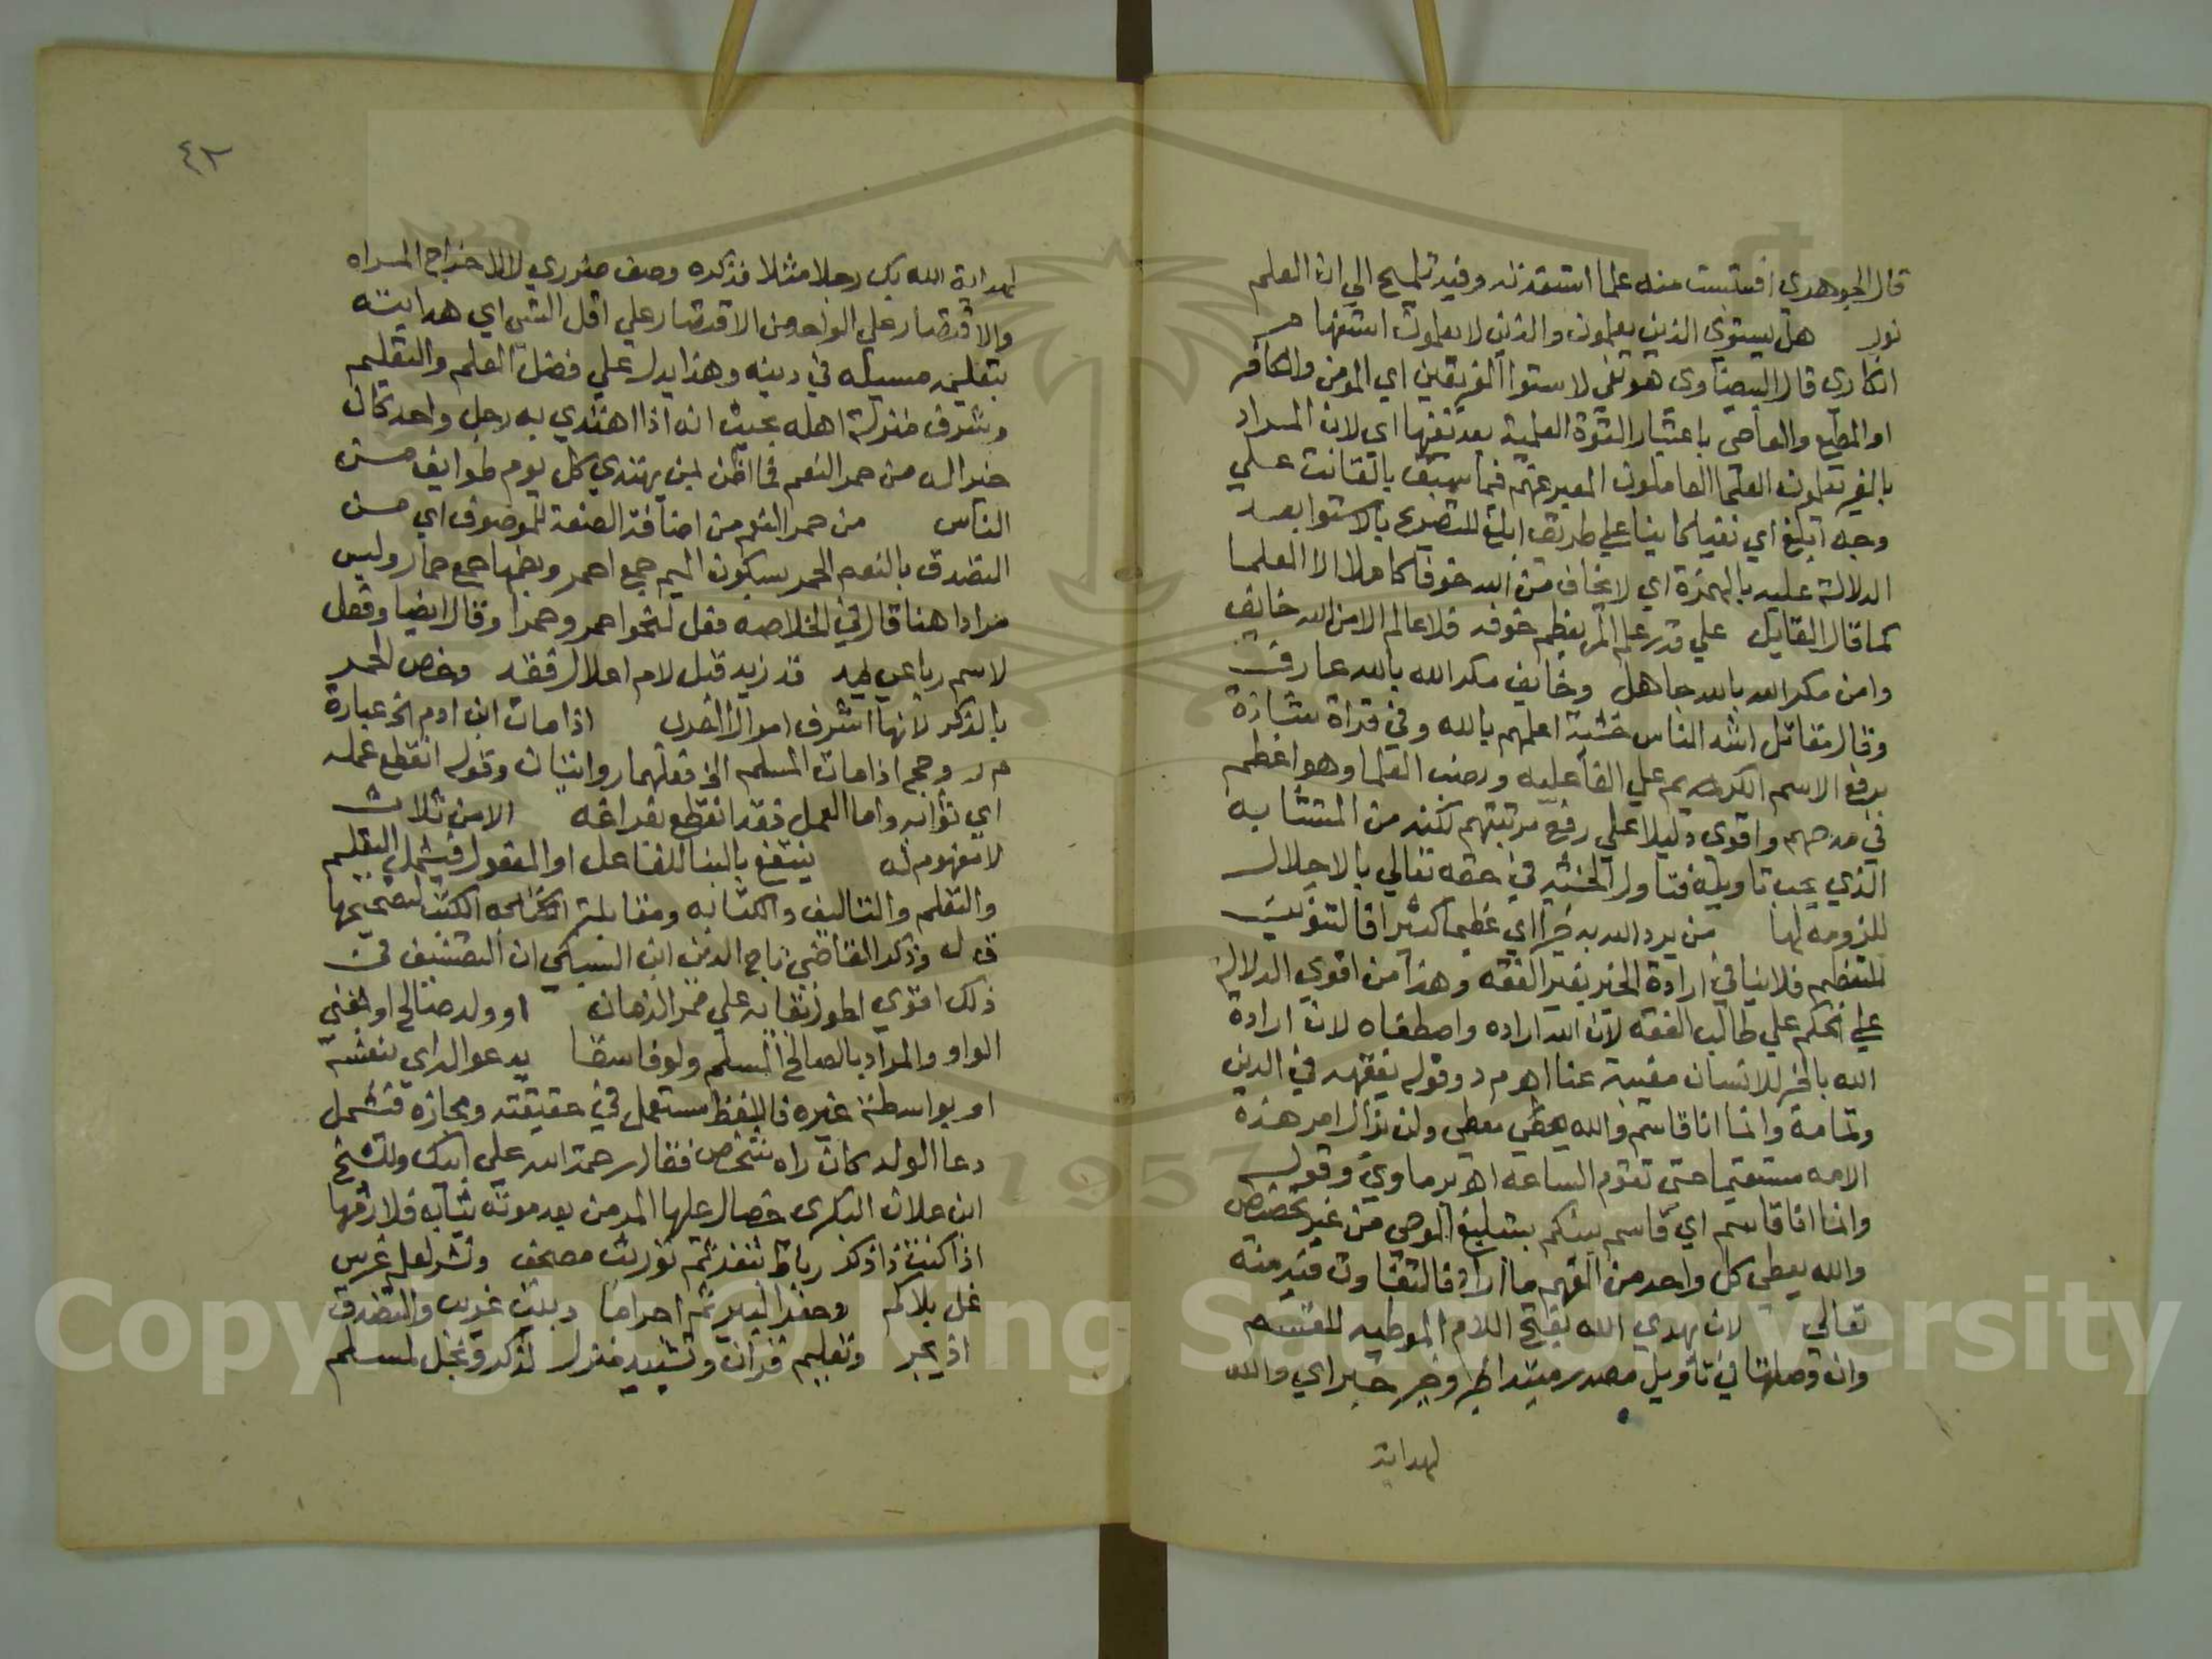 قال الجوهري اقتبست منه علما استفدته وفيه تلميح الي ان العلم
نور هل يستوي الذين يعلمون والذين لا يعلمون استفهام
انكاري قال البيضاوي هو نفي لاستوا الفريقين اي المومن والكافر
او المطيع والعاصي باعتبار القوة العلمية بعد نفيها اي لان المراد
بالفريقين العلما العاملون المعبر عنهم فيما سبق بالقانت علي
وجه ابلغ اي نفيا كاينا علي طريق ابلغ للتصريح بالاستوا بعد
الدلالة عليه بالهمزة اي لا يخاف من الله خوفا كاملا الا العلما
كما قال القايل علي قدر علم المر يعظم خوفه فلا عالم الا من الله خايف
وامن مكر الله بالله جاهل وخايف مكر الله بالله عارف
وقال مقاتل اشد الناس خشية اعلمهم بالله وفي قراة شاذة
برفع الاسم الكريم علي الفاعليه ونصب العلما وهو اعظم
في مدحهم واقوي دليلا علي رفع مرتبتهم لكنه من المتشابه
الذي يجب تاويله فتاول الخشيه في حقه تعالي بالاجلال
للزومه لها من يرد الله به خيرا اي عظيما كثيرا فالتنوين
للتعظيم فلا ينافي ارادة الخير بغير الفقه وهذا من اقوي الدلالة
علي الحكم علي طالب الفقه لان الله اراده واصطفاه لان ارادة
الله بالخير للانسان مغيبة عنا اه م د وقوله يفقهه في الدين
وتمامه وانما انا قاسم والله يعطي معطي ولن يزال امر هذه
الامه مستقيما حتي تقوم الساعه اه برماوي وقوله
وانما انا قاسم اي قاسم بينكم بتبليغ الوحي من غير تخصيص
والله يعطي كل واحد من الفهم ما اراد فالتفاوت فيه منه
تعالي لان يهدي الله بفتح اللام الموطيه للقسم
وان وصلتها في تاويل مصدر مبتدا وخير خبر اي والله
لهداية
٤٢
لهداية الله بك رجلا مثلا فذكره وصف ضروري لا لاخراج المراه
والاقتصار علي الواحد من الاقتصار علي اقل الشي اي هدايته
بتعليمه مسيله في دينه وهذا يدل علي فضل العلم والتعليم
وشرف منزلة اهله بحيث انه اذا اهتدي به رجل واحد كان
خيرا له من حمر النعم فما اظن لمن يهتدي كل يوم طوايف من
الناس من حمر النعم من اضافة الصفة للموصوف اي من
التصدق بالنعم الحمر بسكون الميم جمع احمر وبضمها جمع حمار وليس
مرادا هنا قال في الخلاصه فعل لنحو احمر وحمرا وقال ايضا وفعل
لاسم رباعي بمد قد زيد قبل لام اعلالا فقد وخص الحمر
بالذكر لانها اشرف اموال العرب اذا مات ابن ادم الخ عبارة
م ر وحج اذا مات المسلم الخ فعلهما روايتان وقوله انقطع عمله
اي ثوابه واما العمل فقد انقطع بفراغه الا من ثلاث
لا مفهوم له ينتفع بالبنا للفاعل او المفعول فيشمل التعليم
والتعلم والتاليف والكتابه ومقابلة الكتب لتصحيحها
ق ل وذكر القاضي تاج الدين ابن السبكي ان التصنيف في
ذلك اقوي لطول بقايه علي ممر الزمان او ولد صالح او بمعني
الواو والمراد بالصالح المسلم ولو فاسقا يدعو له اي بنفسه
او بواسطة غيره فاللفظ مستعمل في حقيقته ومجازه فتشمل
دعا الولد كان راه شخص فقال رحمة الله علي ابيك وللشيخ
ابن علان البكري خصال عليها المر من بعد موته يثاب فلازمها
اذا كنت ذا ذكر رباط بثغر ثم توريث مصحف ونشر لعلم غرس
نخل بلا نكر وحفر لبير ثم اجراها وبيت غريب والتصدق
اذ يجر وتعليم قران وتشييد منزل لذكر ونجل لمسلم